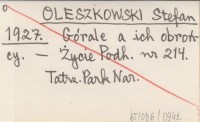 OLESZKOWSKI Stefan
1927. Górale a ich obroń-
cy. — Życie Podh. nr 214.
Tatrz. Park Nar.